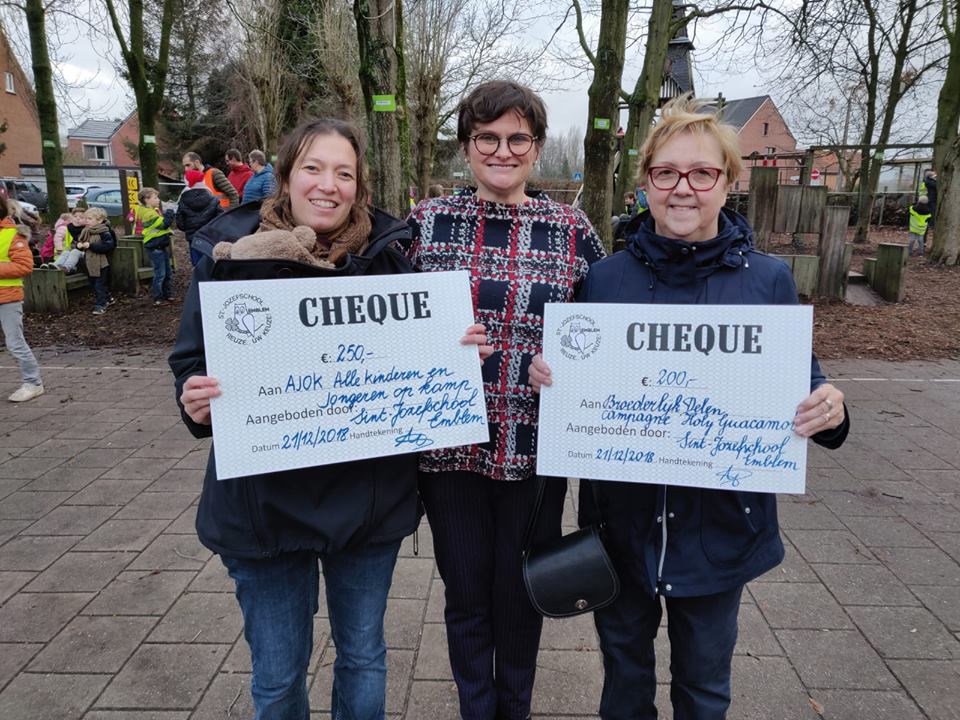 ST-JOZEFSCHOOL
EMBLEM
REUZE UW KEUZE
CHEQUE
€: 250,-
Aan AJOK Alle kinderen en
Jongeren op kamp
Aangeboden door: Sint-Jozefschool
Emblem
Datum 21/12/2018 Handtekening
ST-JOZEFSCHOOL
EMBLEM
REUZE UW KEUZE
CHEQUE
€: 200,-
Aan Broederlijk Delen
campagne Holy Guacamo
Aangeboden door: Sint-Jozefschool
Emblem
Datum 21/12/2018 Handtekening